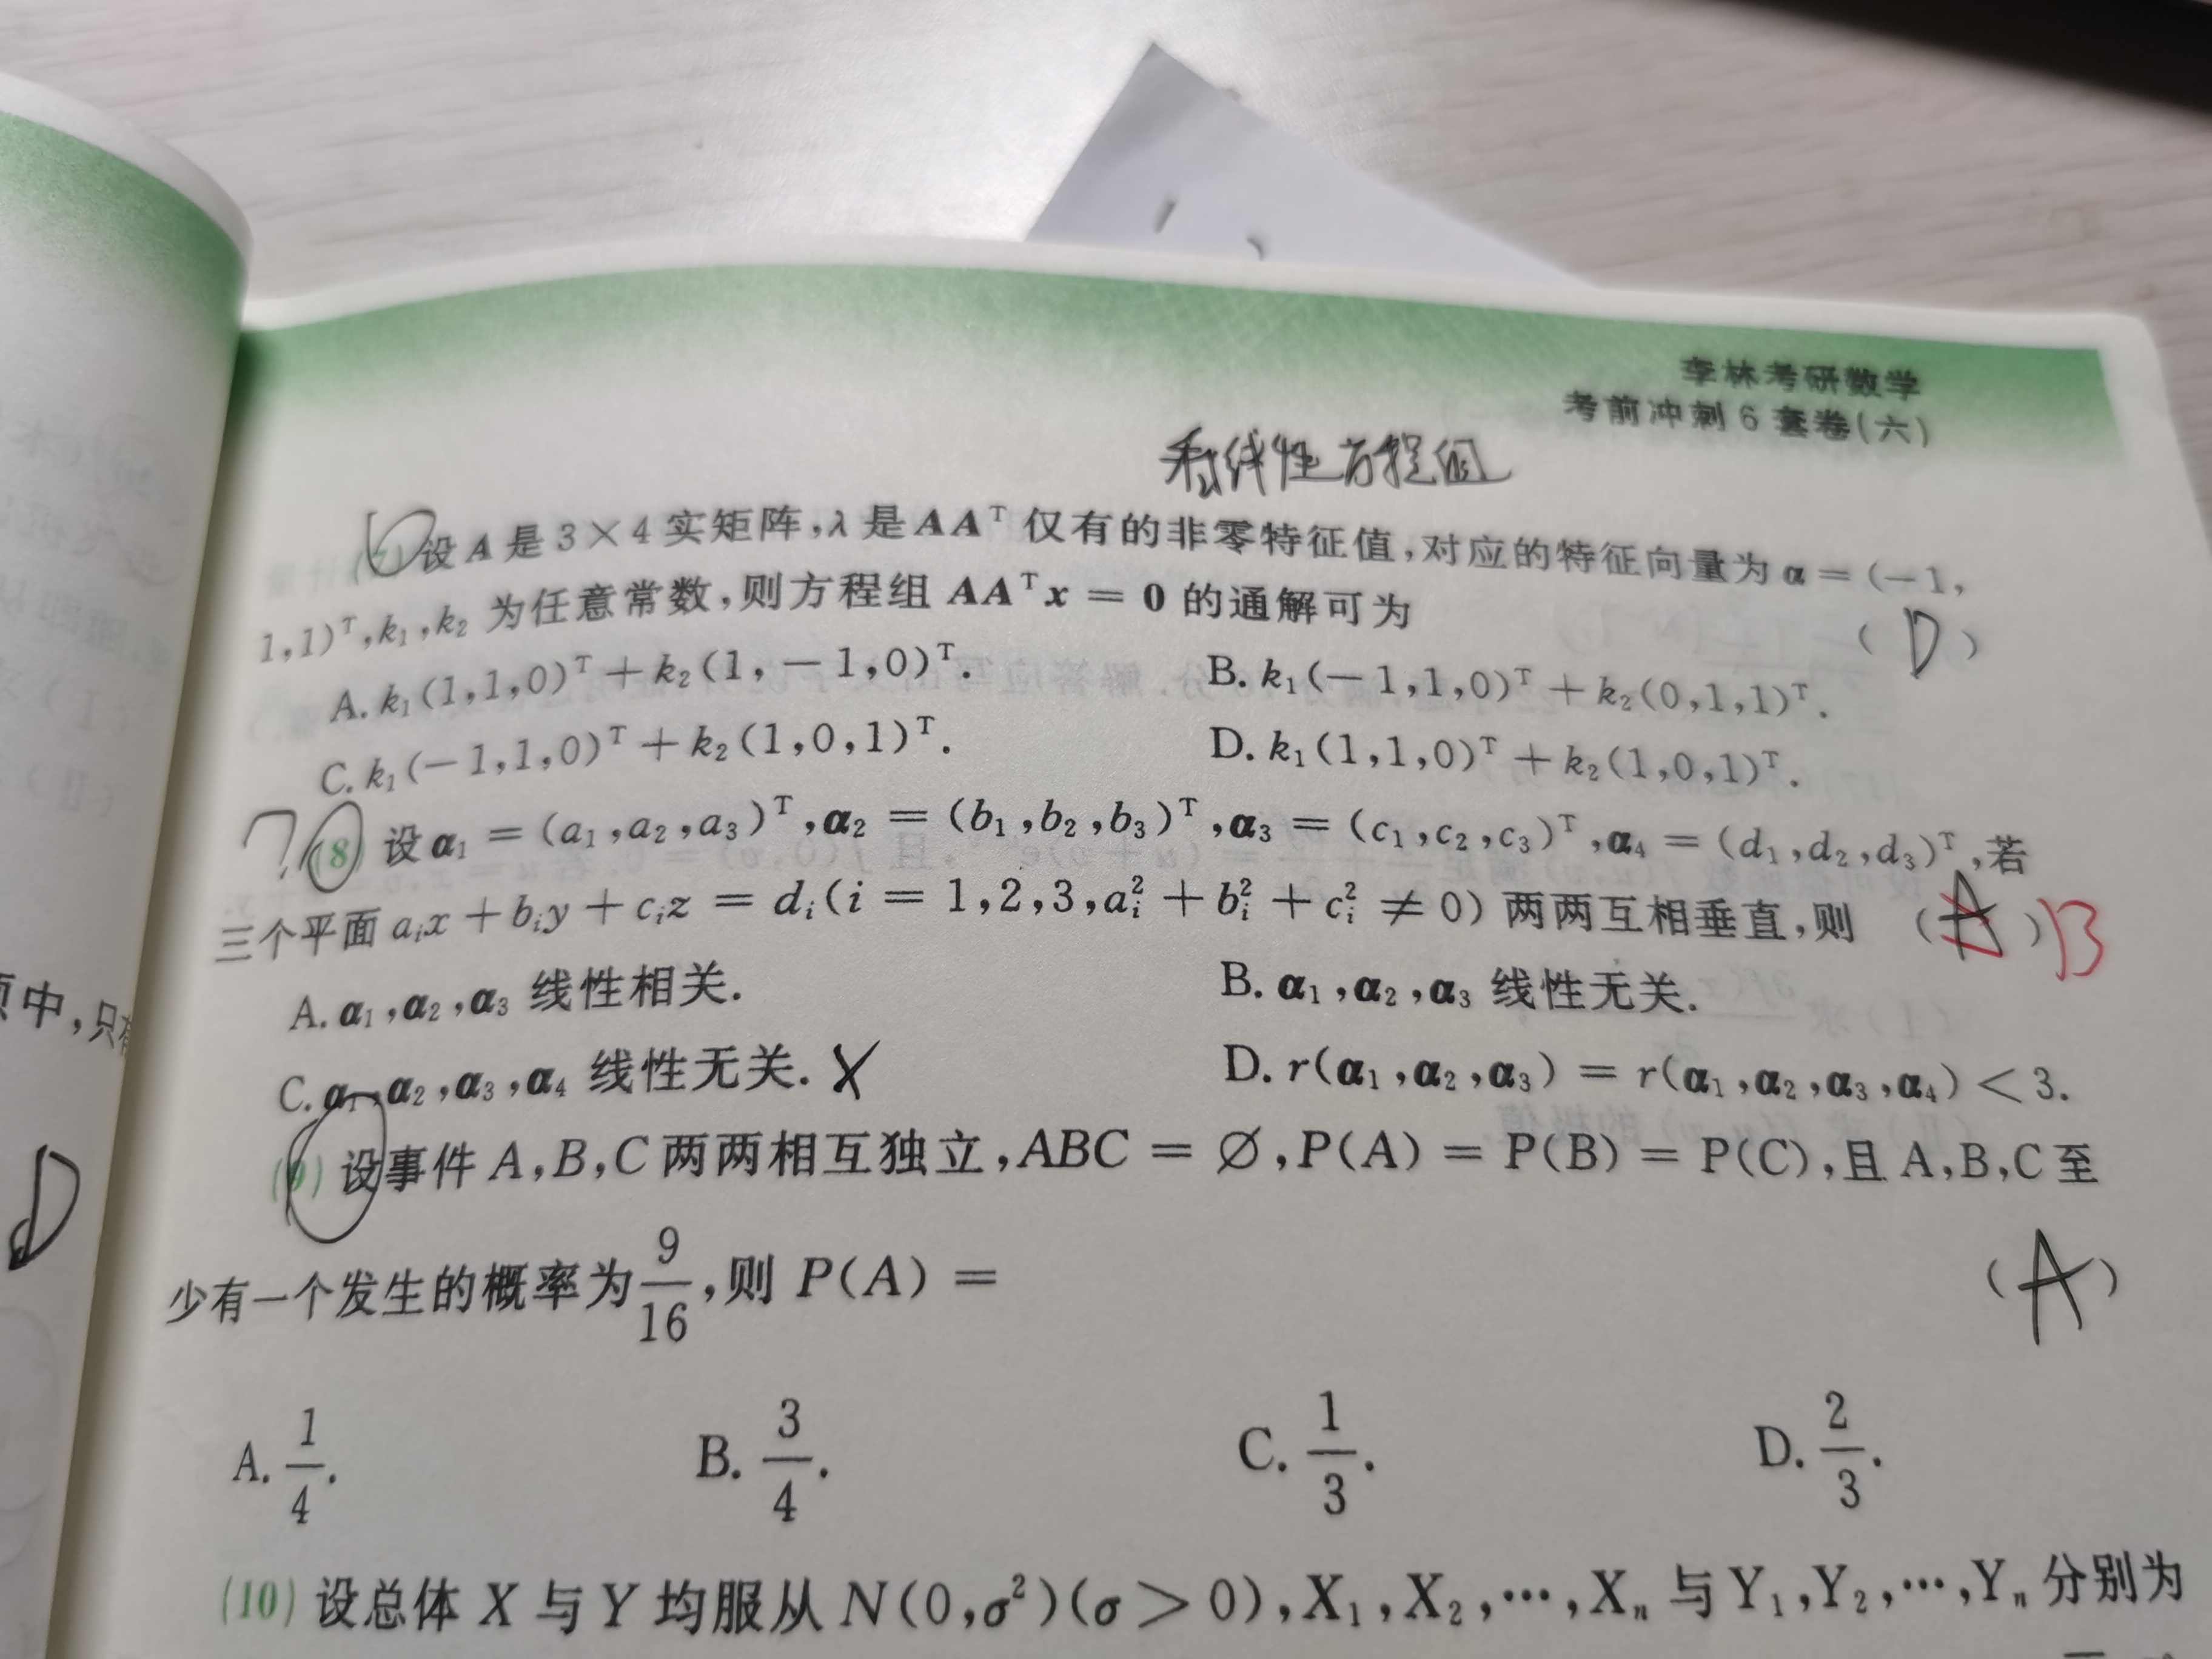 李林考研数学
考前冲刺6套卷(六)
线性方程组
设 A 是 3×4 实矩阵,λ 是 AAᵀ 仅有的非零特征值,对应的特征向量为 α=(-1,
1,1)ᵀ,k₁,k₂ 为任意常数,则方程组 AAᵀx = 0 的通解可为 (D)
A. k₁(1,1,0)ᵀ + k₂(1,-1,0)ᵀ. B. k₁(-1,1,0)ᵀ + k₂(0,1,1)ᵀ.
C. k₁(-1,1,0)ᵀ + k₂(1,0,1)ᵀ. D. k₁(1,1,0)ᵀ + k₂(1,0,1)ᵀ.
? (8) 设 α₁ = (a₁,a₂,a₃)ᵀ,α₂ = (b₁,b₂,b₃)ᵀ,α₃ = (c₁,c₂,c₃)ᵀ,α₄ = (d₁,d₂,d₃)ᵀ,若
三个平面 aᵢx + bᵢy + cᵢz = dᵢ(i = 1,2,3,aᵢ² + bᵢ² + cᵢ² ≠ 0) 两两互相垂直,则 (A) B
A. α₁,α₂,α₃ 线性相关. B. α₁,α₂,α₃ 线性无关.
C. α₁,α₂,α₃,α₄ 线性无关. X D. r(α₁,α₂,α₃) = r(α₁,α₂,α₃,α₄) < 3.
(9) 设事件 A,B,C 两两相互独立,ABC = ∅,P(A) = P(B) = P(C),且 A,B,C 至
少有一个发生的概率为 9/16,则 P(A) = (A)
A. 1/4. B. 3/4. C. 1/3. D. 2/3.
(10) 设总体 X 与 Y 均服从 N(0,σ²)(σ > 0),X₁,X₂,…,Xₙ 与 Y₁,Y₂,…,Yₙ 分别为
中,只
D